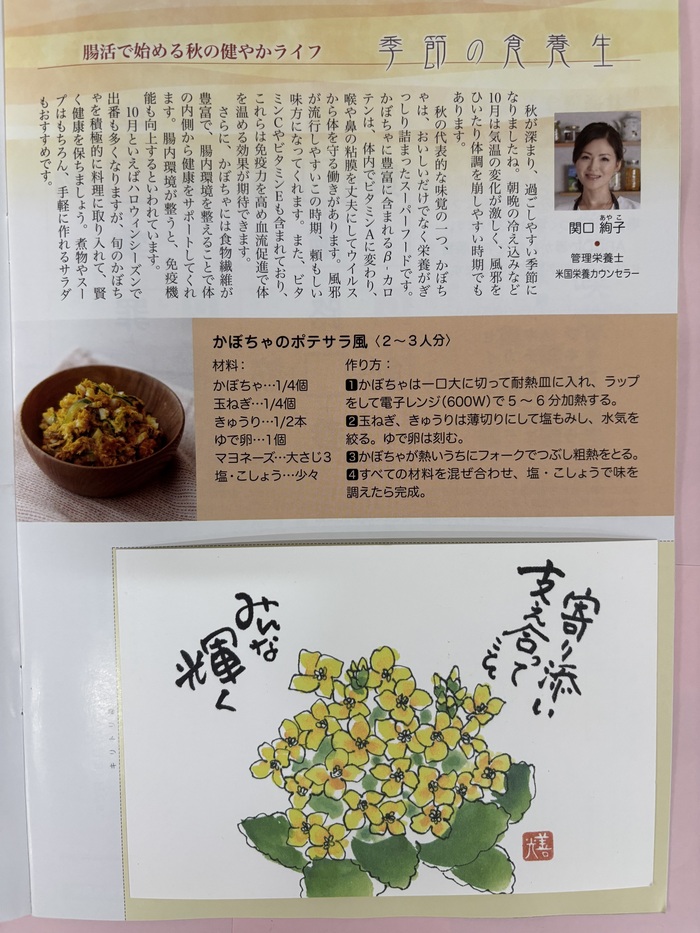 季節の食養生
腸活で始める秋の健やかライフ
関口 絢子
あや こ
管理栄養士
米国栄養カウンセラー
秋が深まり、過ごしやすい季節に
なりましたね。朝晩の冷え込みなど
10月は気温の変化が激しく、風邪を
ひいたり体調を崩しやすい時期でも
あります。
秋の代表的な味覚の一つ、かぼち
ゃは、おいしいだけでなく栄養がぎ
っしり詰まったスーパーフードです。
かぼちゃに豊富に含まれるβ‐カロ
テンは、体内でビタミンAに変わり、
喉や鼻の粘膜を丈夫にしてウイルス
から体を守る働きがあります。風邪
が流行しやすいこの時期、頼もしい
味方になってくれます。また、ビタ
ミンCやビタミンEも含まれており、
これらは免疫力を高め血流促進で体
を温める効果が期待できます。
さらに、かぼちゃには食物繊維が
豊富で、腸内環境を整えることで体
の内側から健康をサポートしてくれ
ます。腸内環境が整うと、免疫機
能も向上するといわれています。
10月といえばハロウィンシーズンで
出番も多くなりますが、旬のかぼち
ゃを積極的に料理に取り入れて、賢
く健康を保ちましょう。煮物やスー
プはもちろん、手軽に作れるサラダ
もおすすめです。
かぼちゃのポテサラ風〈2〜3人分〉
材料：
かぼちゃ…1/4個
玉ねぎ…1/4個
きゅうり…1/2本
ゆで卵…1個
マヨネーズ…大さじ3
塩・こしょう…少々
作り方：
1かぼちゃは一口大に切って耐熱皿に入れ、ラップ
をして電子レンジ(600W)で5〜6分加熱する。
2玉ねぎ、きゅうりは薄切りにして塩もみし、水気を
絞る。ゆで卵は刻む。
3かぼちゃが熱いうちにフォークでつぶし粗熱をとる。
4すべての材料を混ぜ合わせ、塩・こしょうで味を
調えたら完成。
寄り添い
支え合って
みんな
輝く
キリトリ